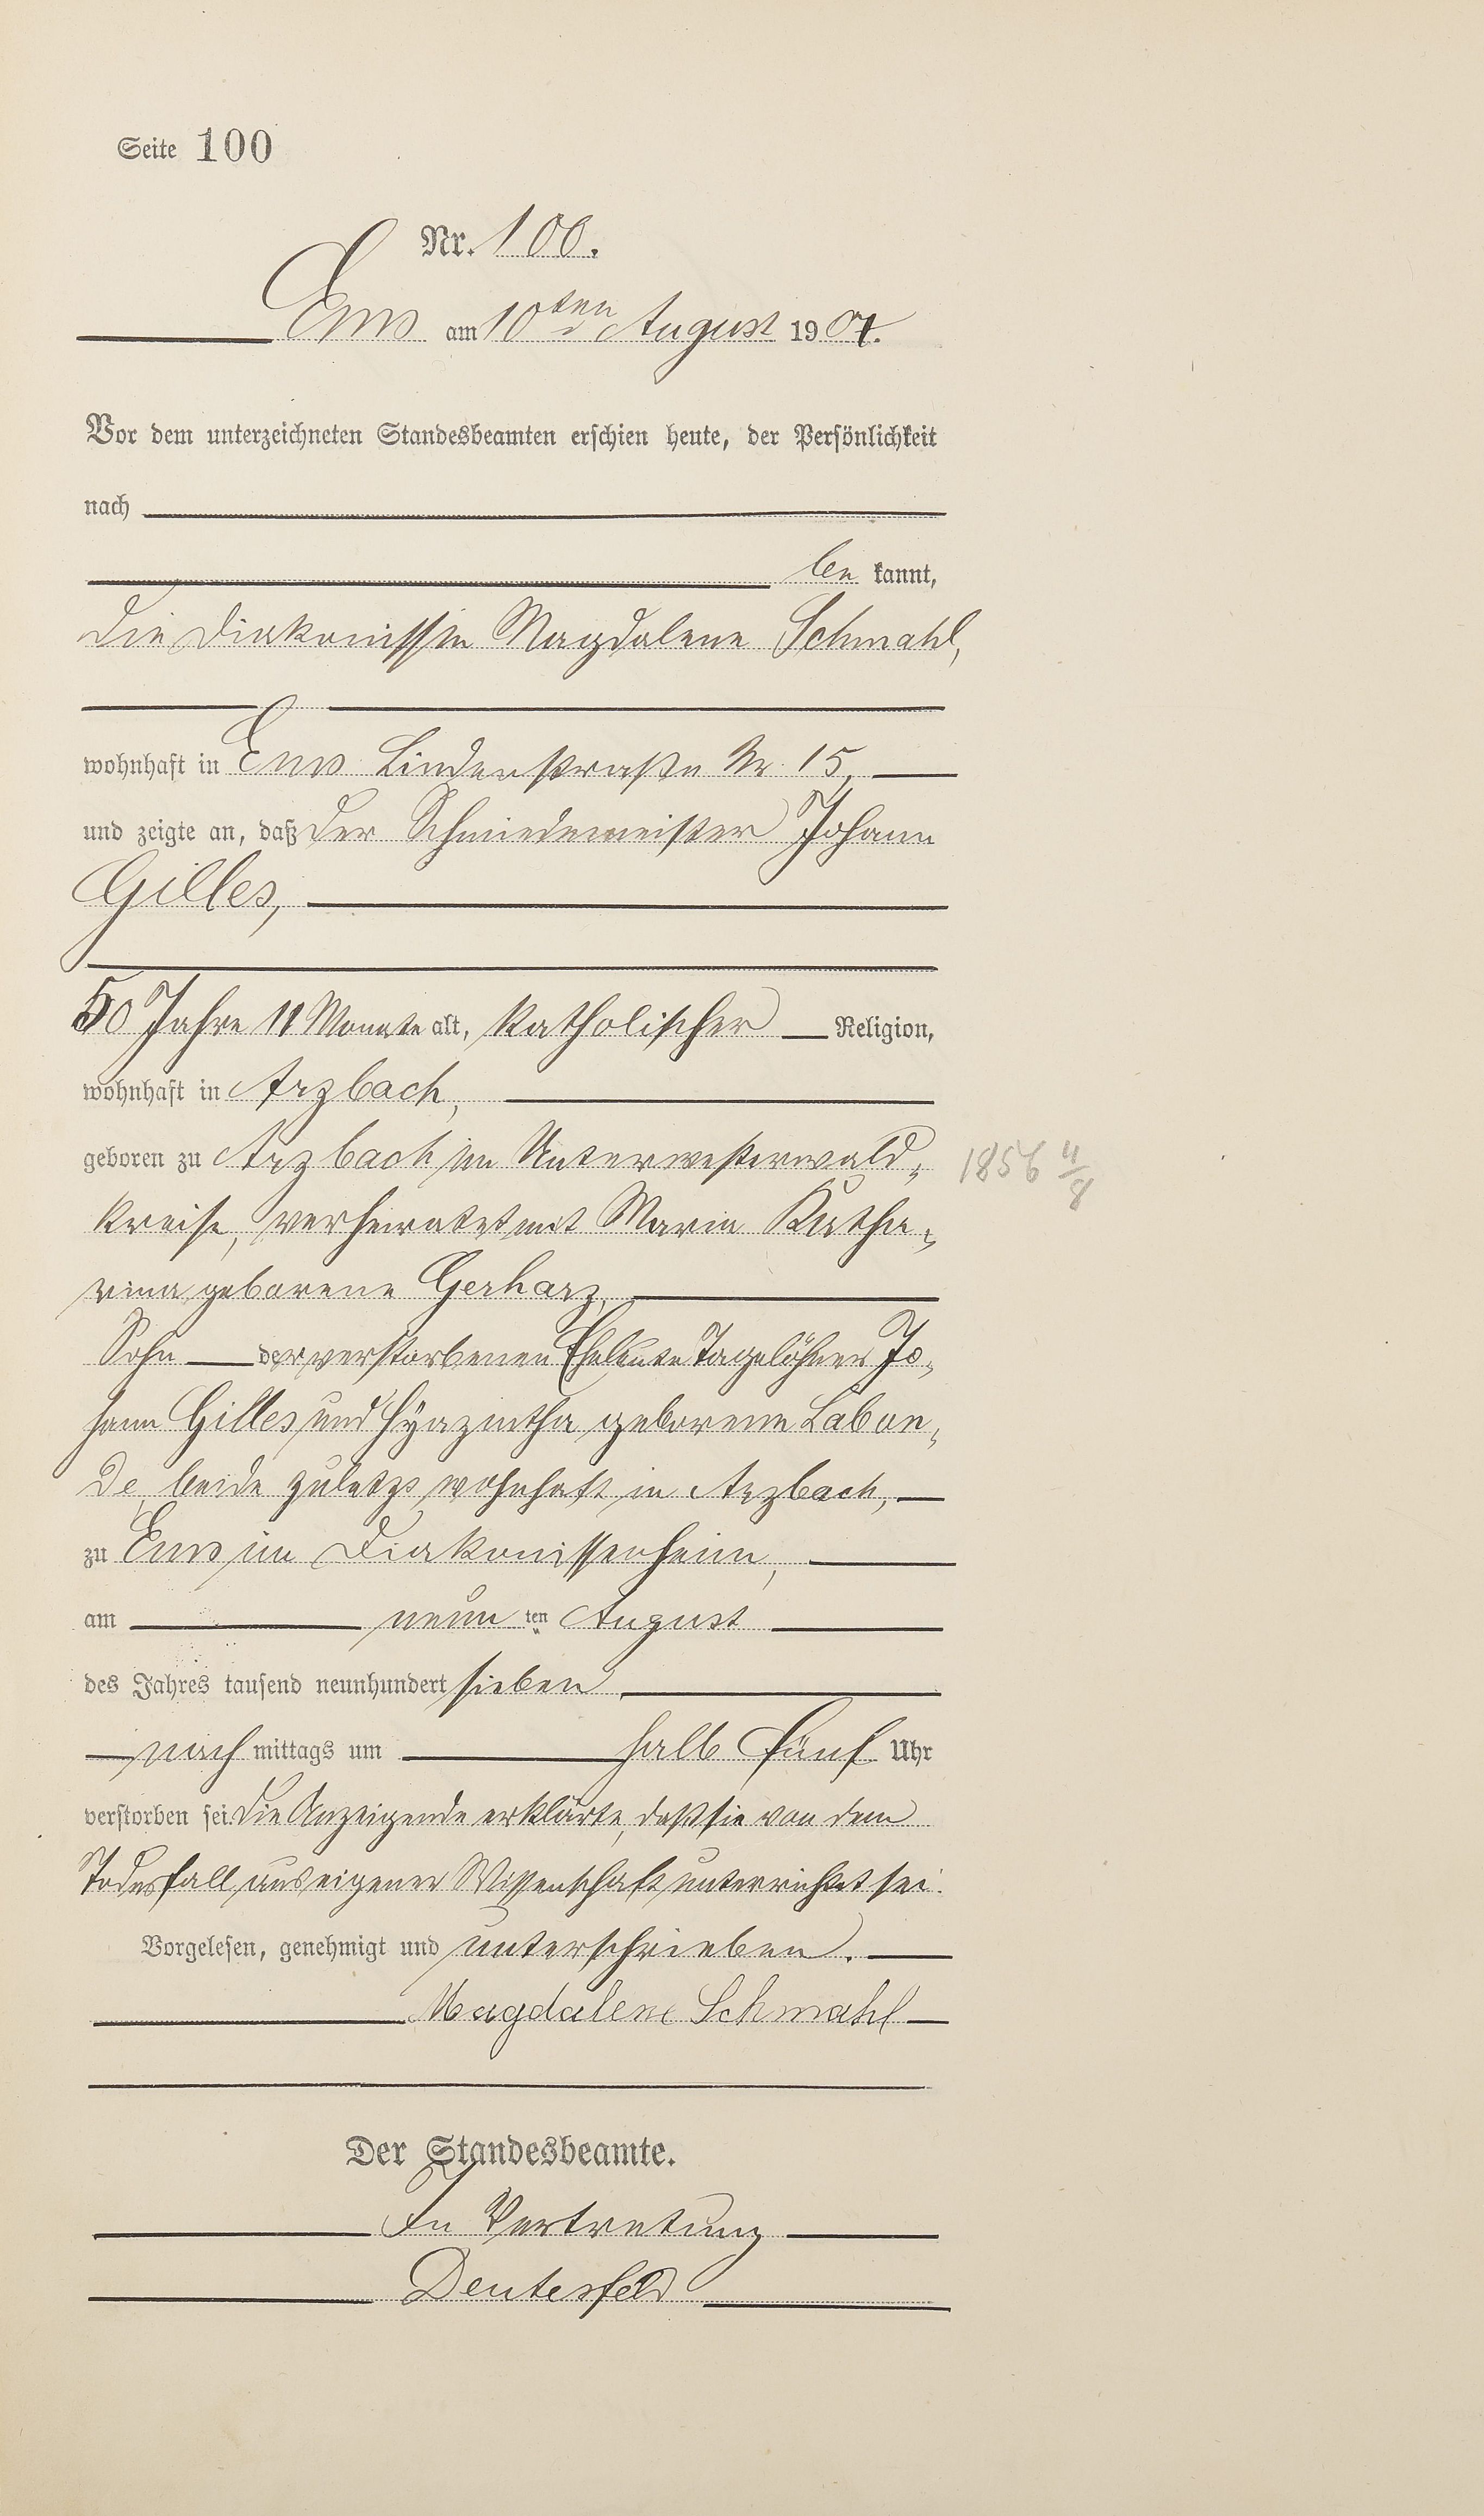 Seite 100
Nr. 100.
Ems am 10ten August 1907.
Vor dem unterzeichneten Standesbeamten erschien heute, der Persönlichkeit
nach
be kannt,
die Diakonissin Magdalene Schmahl,
wohnhaft in Ems Lindenstraße Nr. 15,
und zeigte an, daß der Schmiedemeister Johann
Gilles,
50 Jahre 11 Monate alt, katholischer Religion,
wohnhaft in Arzbach,
geboren zu Arzbach im Unterwesterwald- 1856 11/8
kreise, verheiratet mit Maria Katha-
rina geborene Gerharz,
Sohn der verstorbenen Eheleute Tagelöhner Jo-
hann Gilles und Hyazintha geborene Labon-
de, beide zuletzt wohnhaft in Arzbach,
zu Ems im Diakonissenheim,
am neun ten August
des Jahres tausend neunhundert sieben
nach mittags um halb fünf Uhr
verstorben sei. Die Anzeigende erklärte, daß sie von dem
Todesfall aus eigener Wissenschaft unterrichtet sei.
Vorgelesen, genehmigt und unterschrieben.
Magdalene Schmahl
Der Standesbeamte.
In Vertretung
Deutesfeld